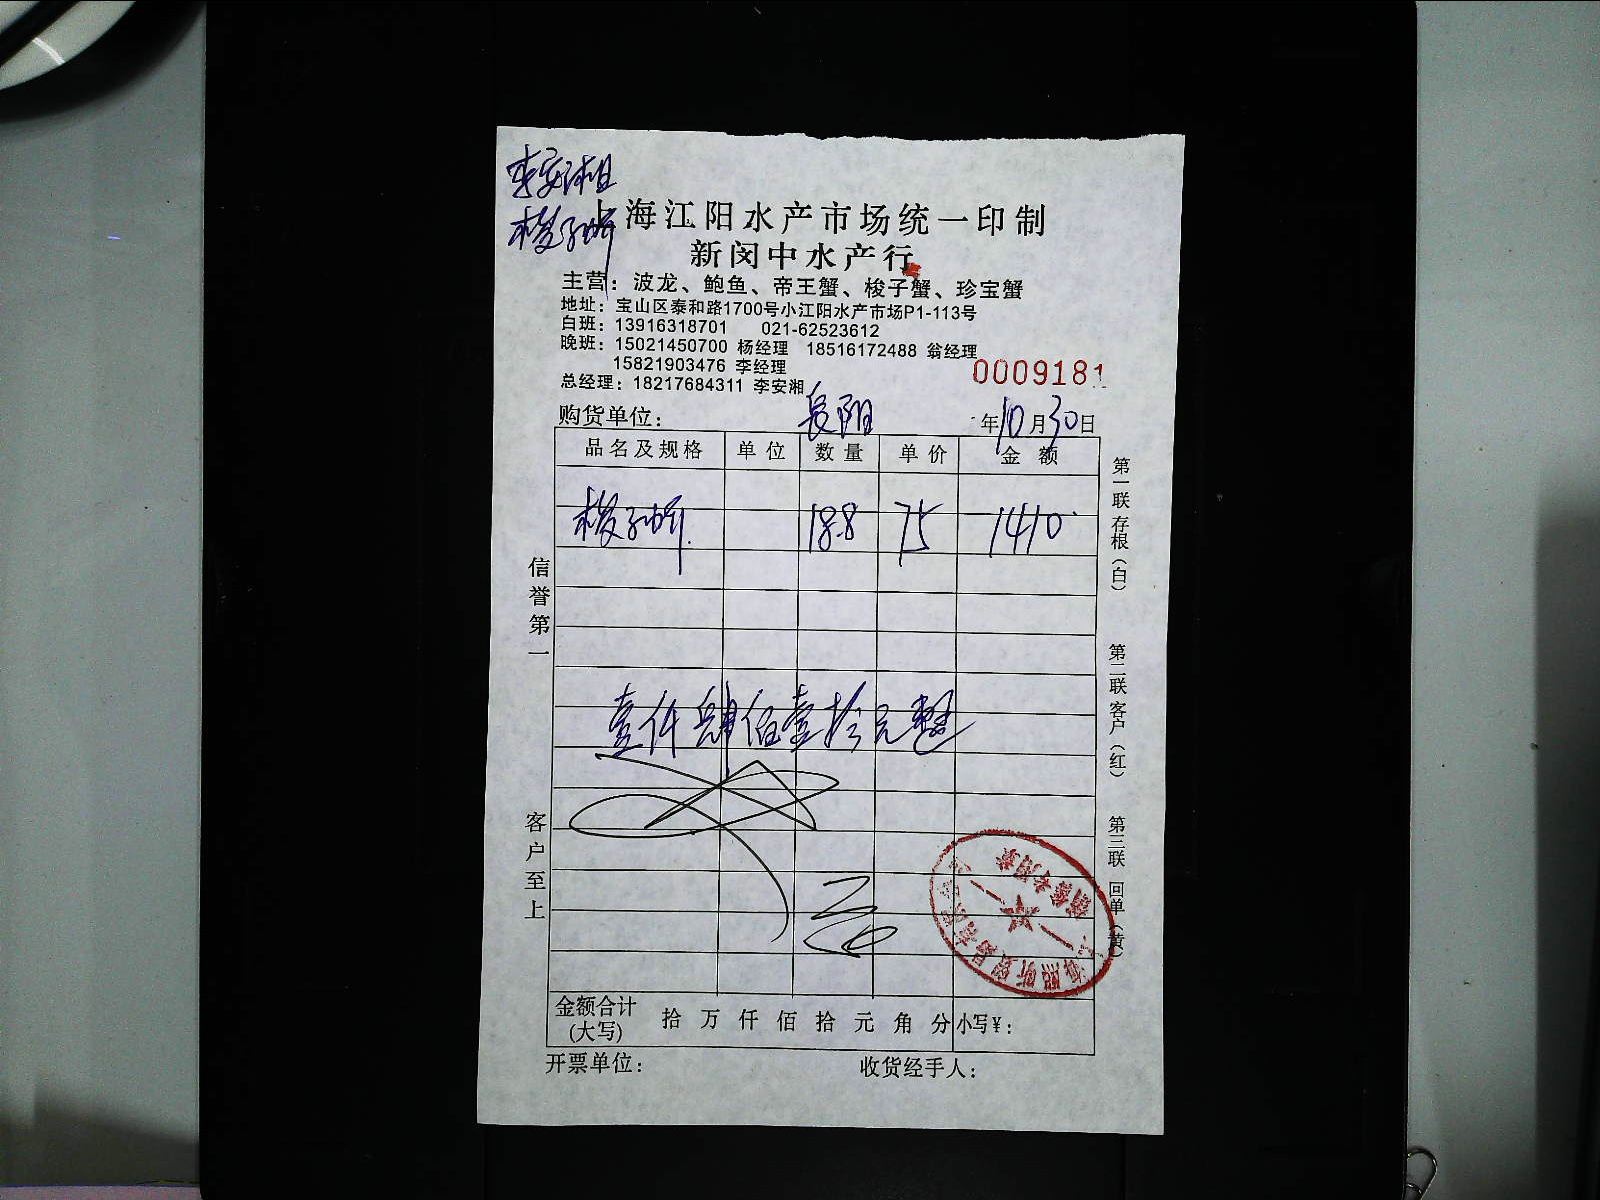 李安湘
梭子蟹
上海江阳水产市场统一印制
新闵中水产行
主营：波龙、鲍鱼、帝王蟹、梭子蟹、珍宝蟹
地址：宝山区泰和路1700号小江阳水产市场P1-113号
白班：13916318701 021-62523612
晚班：15021450700 杨经理 18516172488 翁经理
15821903476 李经理
0009181
总经理：18217684311 李安湘
购货单位： 长阳 年10月30日
品名及规格 单位 数量 单价 金额
梭子蟹 18.8 75 1410
壹仟肆佰壹拾元整
金额合计(大写) 拾 万 仟 佰 拾 元 角 分 小写¥：
开票单位： 收货经手人：
信誉第一
客户至上
第一联 存根（白）
第二联 客户（红）
第三联 回单（黄）
销售专用章